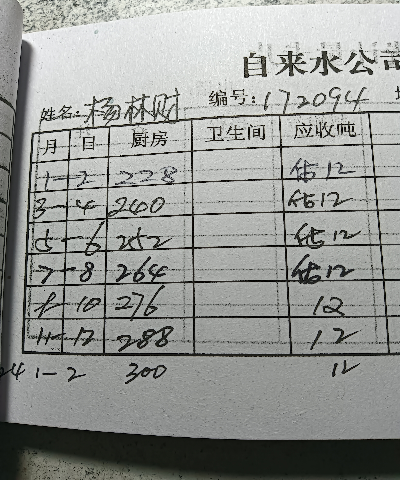 自来水公司
姓名:杨林财 编号:172094
月 日 厨房 卫生间 应收吨
1-2 228 估12
3-4 240 估12
5-6 252 估12
7-8 264 估12
10 276 12
11-12 288 12
24 1-2 300 12